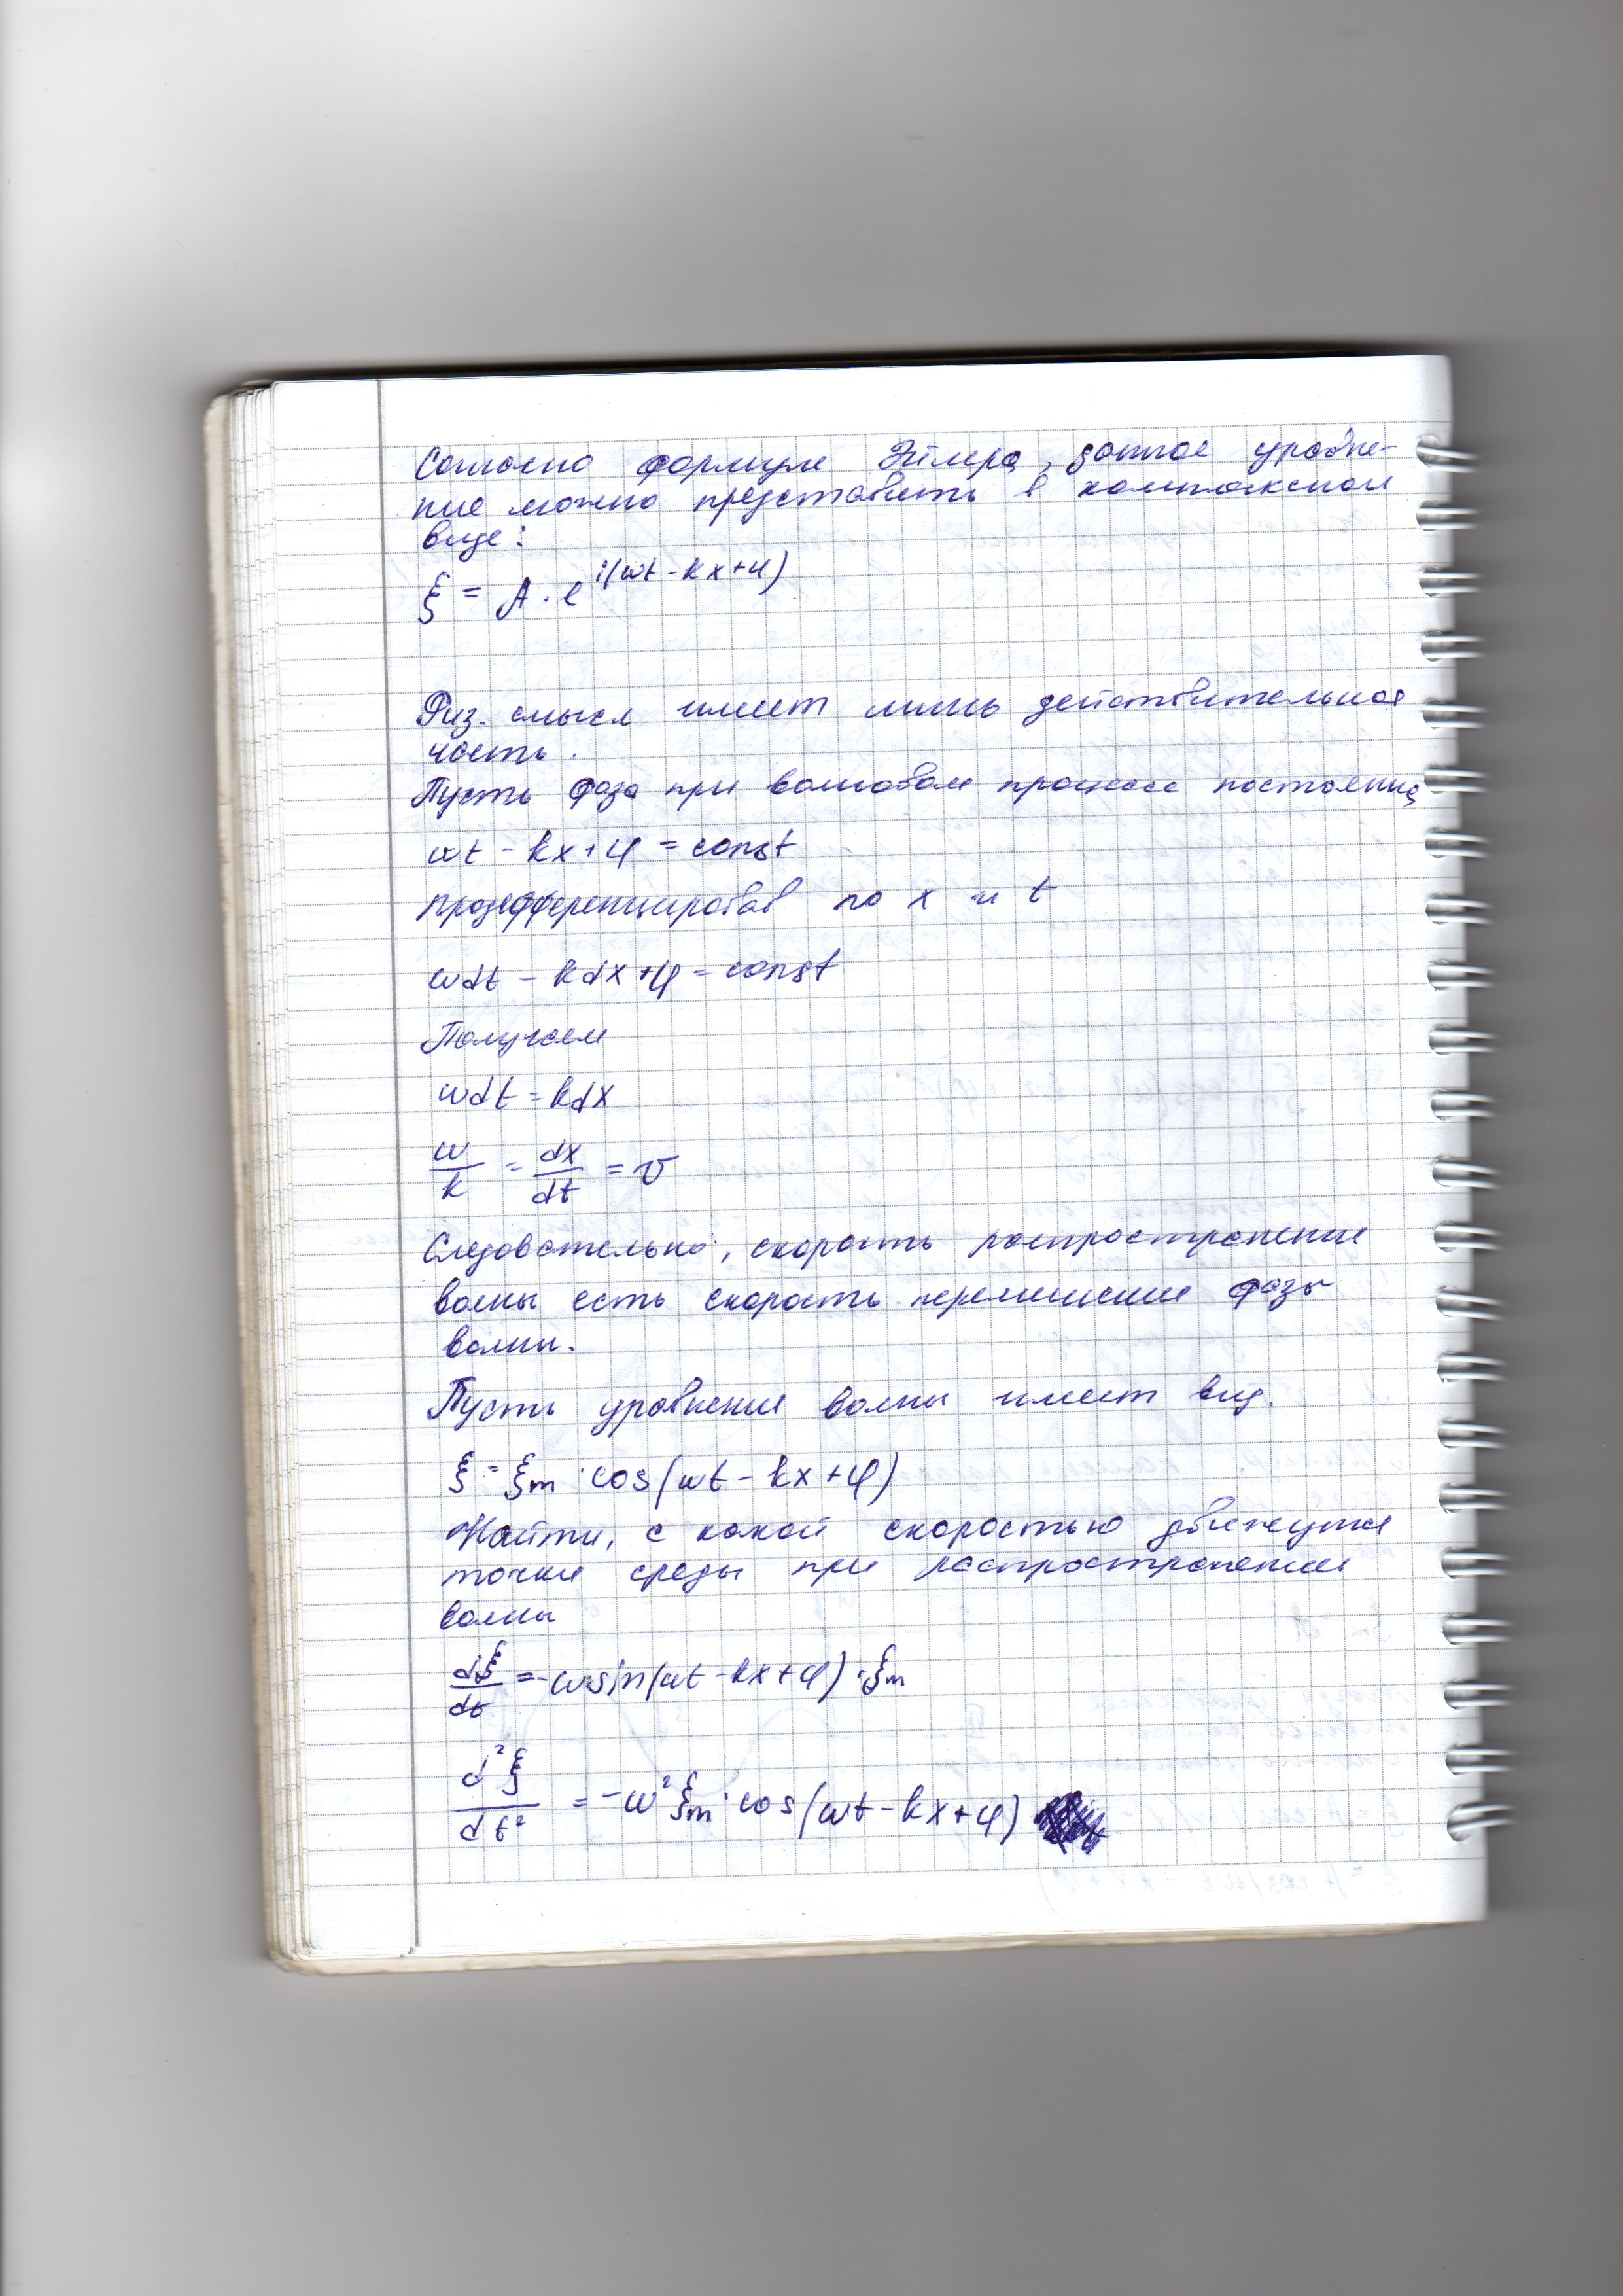 Согласно формуле Эйлера, данное уравне-
ние можно представить в комплексном
виде:
ξ = A · e^{i(ωt - kx + φ)}
Физ. смысл имеет лишь действительная
часть.
Пусть фаза при волновом процессе постоянна
ωt - kx + φ = const
продифференцировав по x и t
ωdt - kdx + φ = const
Получаем
ωdt = kdx
ω/k = dx/dt = υ
Следовательно, скорость распространения
волны есть скорость перемещения фазы
волны.
Пусть уравнение волны имеет вид.
ξ = ξm · cos(ωt - kx + φ)
Найти, с какой скоростью движутся
точки среды при распространении
волны
dξ/dt = -ωsin(ωt - kx + φ) · ξm
d²ξ/dt² = -ω²ξm · cos(ωt - kx + φ)